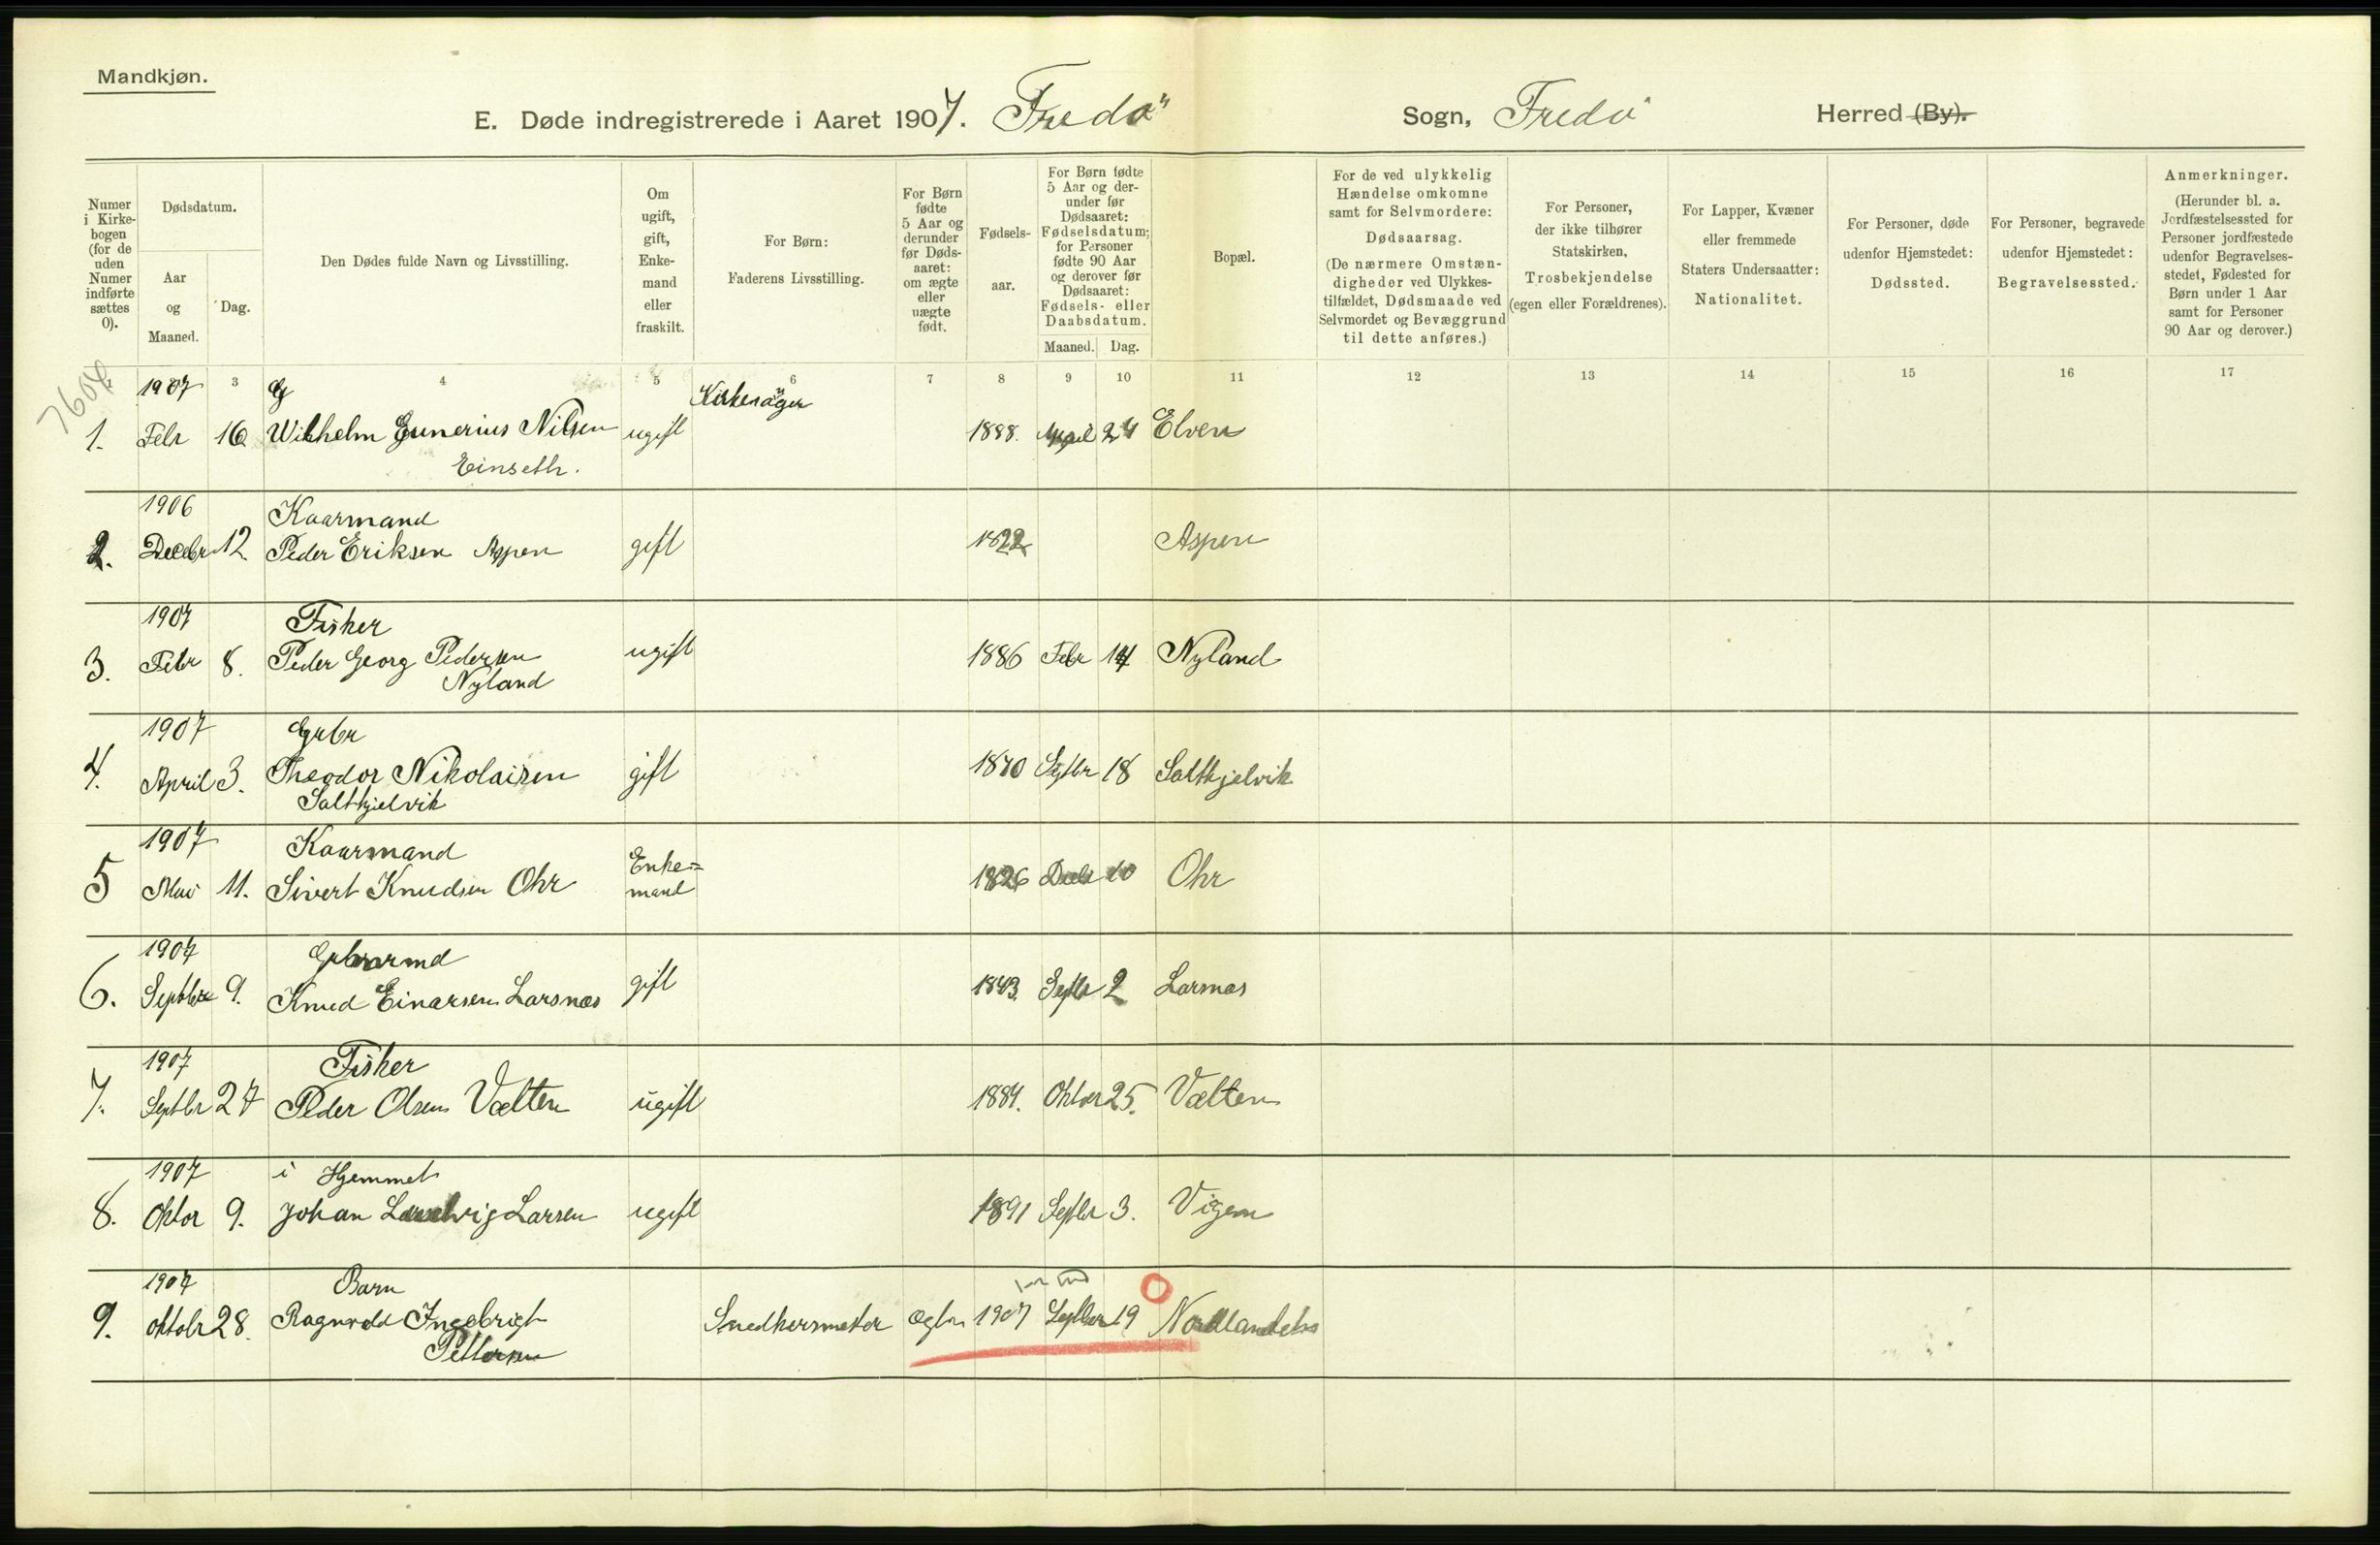 Mandkjøn.
E. Døde indregistrerede i Aaret 1907. Fredø Sogn, Fredø Herred (By).
Numer i Kirkebogen (for de uden Numer indførte sættes 0).
Dødsdatum.
Aar og Maaned.
Dag.
Den Dødes fulde Navn og Livsstilling.
Om ugift, gift, Enkemand eller fraskilt.
For Børn: Faderens Livsstilling.
For Børn fødte 5 Aar og derunder før Dødsaaret: om ægte eller uægte født.
Fødselsaar.
For Børn fødte 5 Aar og derunder før Dødsaaret: Fødselsdatum; for Personer fødte 90 Aar og derover før Dødsaaret: Fødsels- eller Daabsdatum.
Maaned. Dag.
Bopæl.
For de ved ulykkelig Hændelse omkomne samt for Selvmordere: Dødsaarsag. (De nærmere Omstændigheder ved Ulykkestilfældet, Dødsmaade ved Selvmordet og Bevæggrund til dette anføres.)
For Personer, der ikke tilhører Statskirken, Trosbekjendelse (egen eller Forældrenes).
For Lapper, Kvæner eller fremmede Staters Undersaatter: Nationalitet.
For Personer, døde udenfor Hjemstedet: Dødssted.
For Personer, begravede udenfor Hjemstedet: Begravelsessted.
Anmerkninger. (Herunder bl. a. Jordfæstelsessted for Personer jordfæstede udenfor Begravelsesstedet, Fødested for Børn under 1 Aar samt for Personer 90 Aar og derover.)
3 4 5 6 7 8 9 10 11 12 13 14 15 16 17
7604
1907 G Kirkesager
1. Febr 16 Wilhelm Gunerius Nilsen ugift 1888. April 24 Elven
Einseth.
1906 Kaarmand
2. Decbr 12 Peder Eriksen Aspen gift 1822 Aspen
1907 Fisker
3. Febr 8. Peder Georg Pedersen ugift 1886 Febr 14 Nyland
Nyland
1907 Gbr
4. April 3. Theodor Nikolaisen gift 1870 Septbr 18 Saltkjelvik
Saltkjelvik
1907 Kaarmand
5 Mai 11. Sivert Knudsen Ohr Enkemand 1826 Decbr 10 Ohr
1907
6. Septbr 9. Knud Einarsen Larsnæs gift 1843. Septbr 2 Larsnæs
1907 Fisker
7. Septbr 27 Peder Olsen Vælten ugift 1884. Oktober 25. Vælten
1907 i Hjemmet
8. Oktbr 9. Johan Ludvig Larsen ugift 1891 Septbr 3. Vigem
1907 Barn
9. oktobr 28. Ragnvald Ingebrigt Snedkermester Ægte 1907 Septber 19 Nordlandet
Pettersen